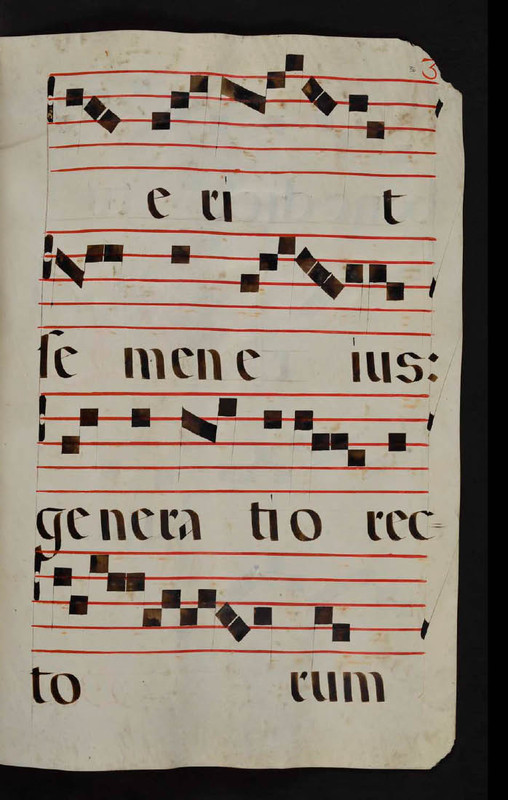 3
e ri t
se men e ius:
genera tio rec=
to rum